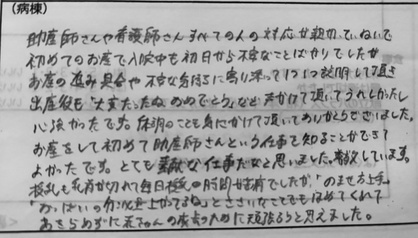 (病棟)
助産師さんや看護師さんすべての人の対応が親切でていねいで
初めてのお産で入院中も初日から不安なことばかりでしたが
お産の進み具合や不安な気持ちに寄り添って1つ1つ説明して頂き
出産後も「大変だったね、おめでとう」など声かけて頂いてうれしかったし
心強かったです。体調のことも気にかけて頂いてありがとうございました。
お産をして初めて助産師さんという仕事を知ることができて
よかったです。とても素敵な仕事だなと思いました。尊敬しています。
授乳も乳首が切れて毎日授乳の時間が苦痛でしたが「のませ方上手」
「おっぱいの分泌上がってるね」とささいなことでもほめてくれて
あきらめずに赤ちゃんの成長のために頑張ろうと思えました。